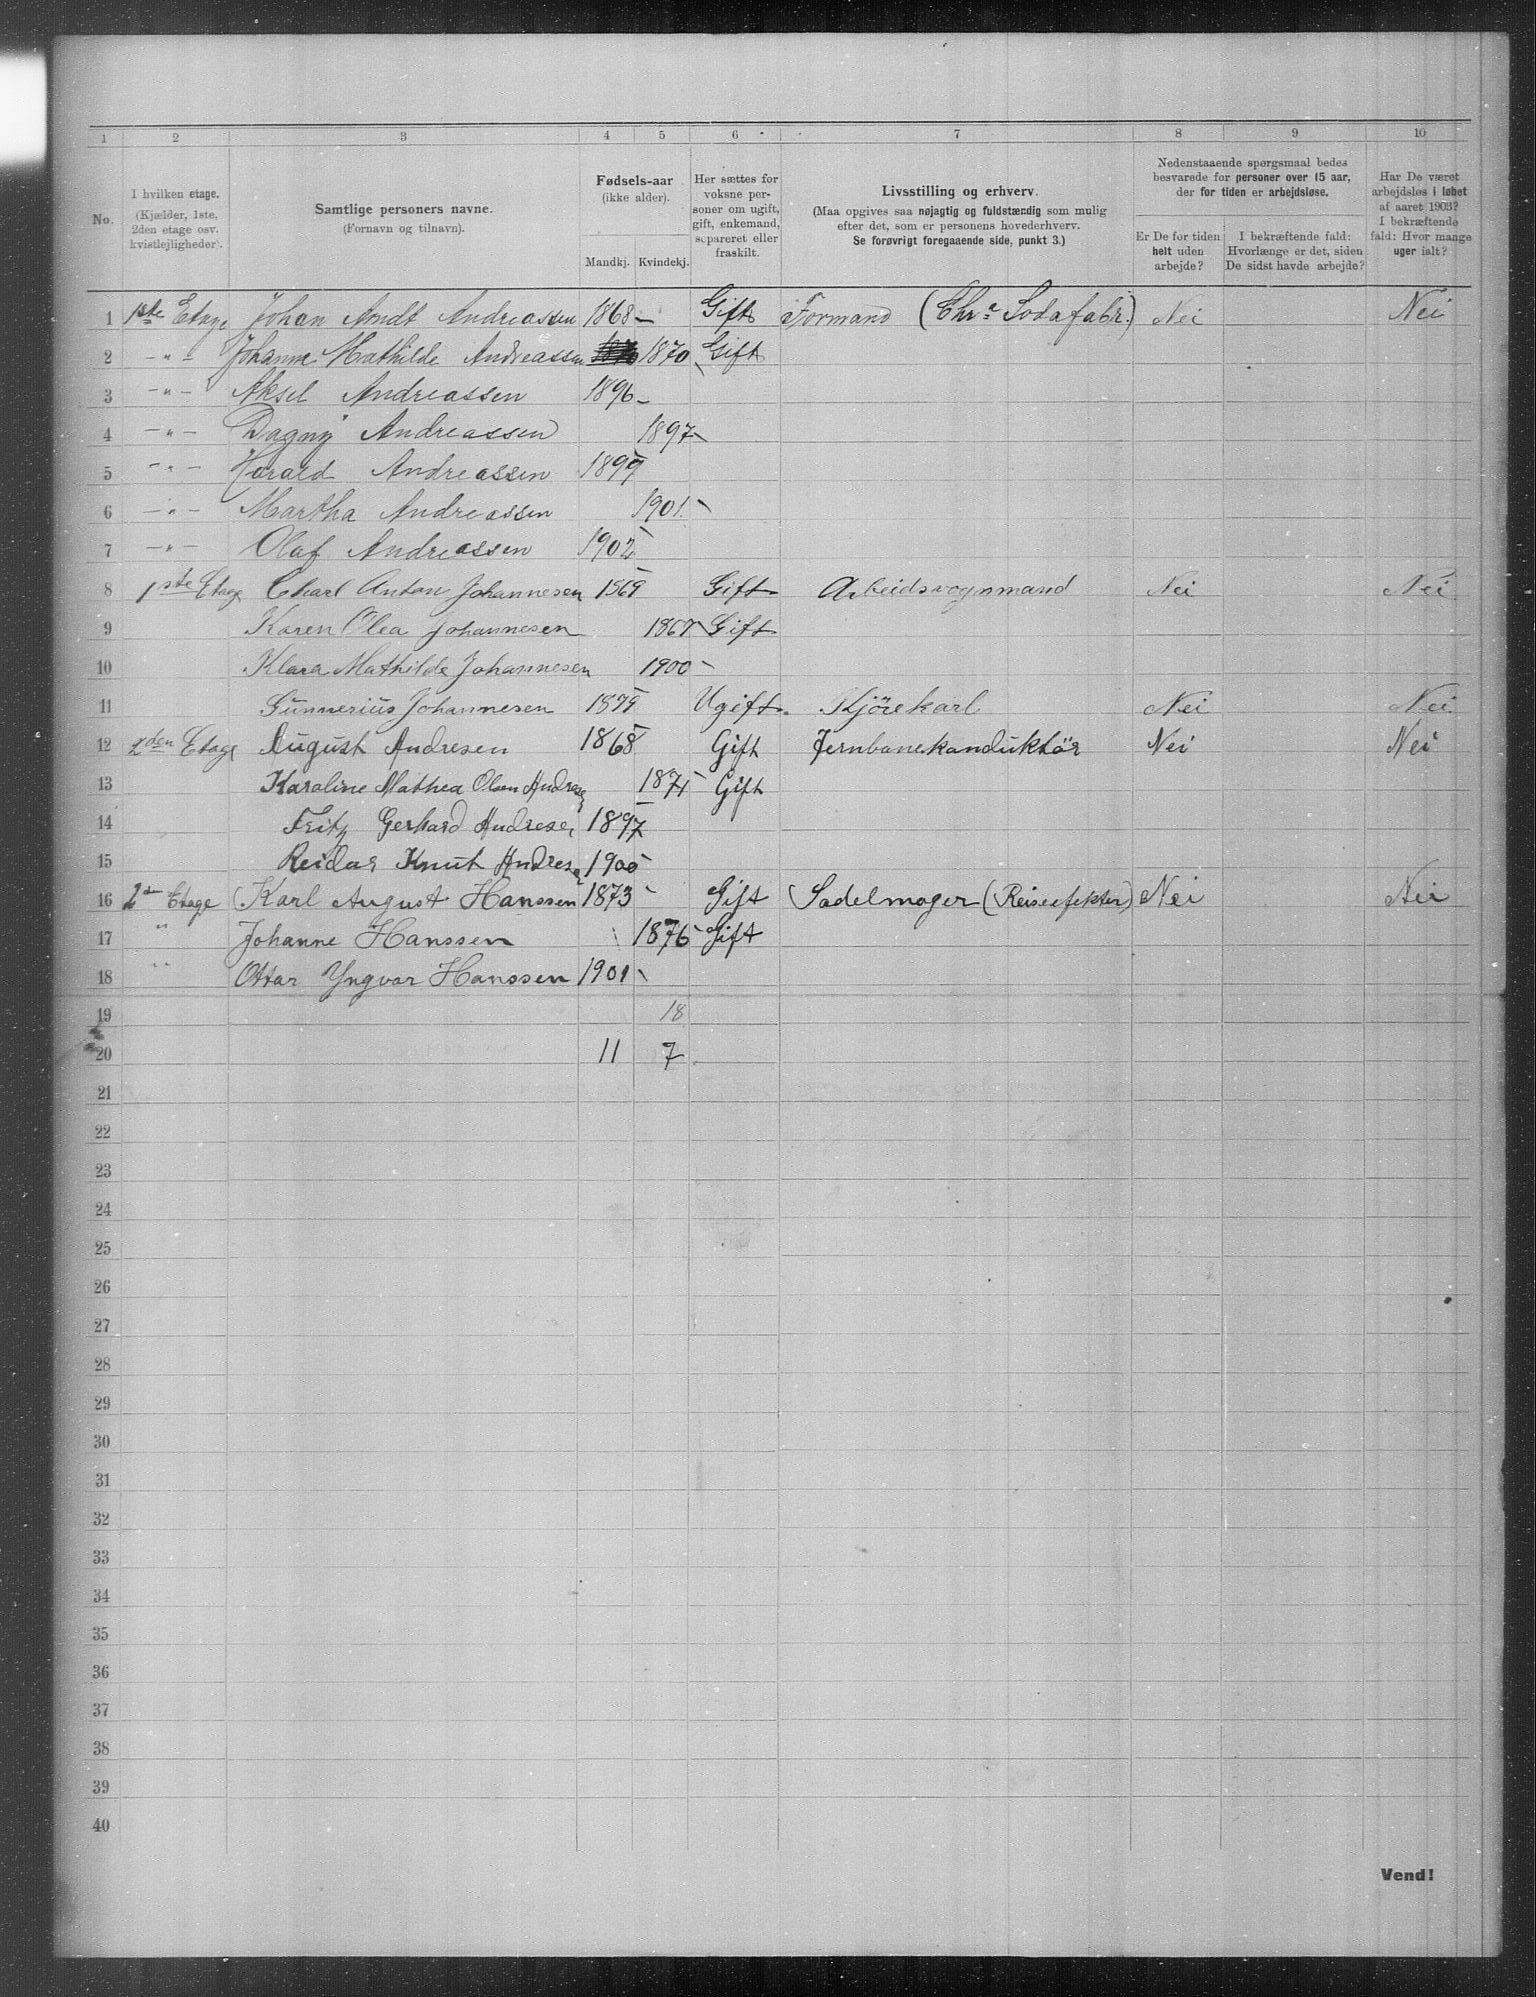 1 2 3 4 5 6 7 8 9 10
No.
I hvilken etage.
(Kjælder, 1ste,
2den etage osv.
kvistleiligheder).
Samtlige personers navne.
(Fornavn og tilnavn).
Fødsels-aar
(ikke alder).
Mandkj. Kvindekj.
Her sættes for
voksne per-
soner om ugift,
gift, enkemand,
separeret eller
fraskilt.
Livsstilling og erhverv.
(Maa opgives saa nøjagtig og fuldstændig som mulig
efter det, som er personens hovederhverv.
Se forøvrigt foregaaende side, punkt 3.)
Nedenstaaende spørgsmaal bedes
besvarede for personer over 15 aar,
der for tiden er arbejdsløse.
Er De for tiden
helt uden
arbejde?
I bekræftende fald:
Hvorlænge er det, siden
De sidst havde arbejde?
Har De været
arbejdsløs i løbet
af aaret 1903?
I bekræftende
fald: Hvor mange
uger ialt?
1 1ste Etage Johan Arndt Andreassen 1868 - Gift Formand (Chr.a Sodafabr.) Nei Nei
2 -"- Johanne Mathilde Andreassen 1870 Gift
3 -"- Aksel Andreassen 1896 -
4 -"- Dagny Andreassen 1897 -
5 -"- Harald Andreassen 1899
6 -"- Martha Andreassen 1901 -
7 -"- Olaf Andreassen 1902
8 1ste Etage Charl Anton Johannesen 1869 Gift Arbeidsvognmand Nei Nei
9 Karen Olea Johannesen 1867 Gift
10 Klara Mathilde Johannesen 1900 -
11 Gunnerius Johannesen 1879 Ugift. Kjørekarl Nei Nei
12 2den Etage August Andresen 1868 Gift Jernbanekonduktør Nei Nei
13 Karoline Mathea Olsen Andresen 1871 Gift
14 Fritz Gerhard Andresen 1897
15 Reidar Knut Andresen 1900
16 2den Etage Karl August Hanssen 1873 - Gift Sadelmager (Reiseefekter) Nei Nei
17 " Johanne Hanssen 1876 Gift
18 " Ottar Yngvar Hanssen 1901 -
19 18
20 11 7
21
22
23
24
25
26
27
28
29
30
31
32
33
34
35
36
37
38
39
40
Vend!